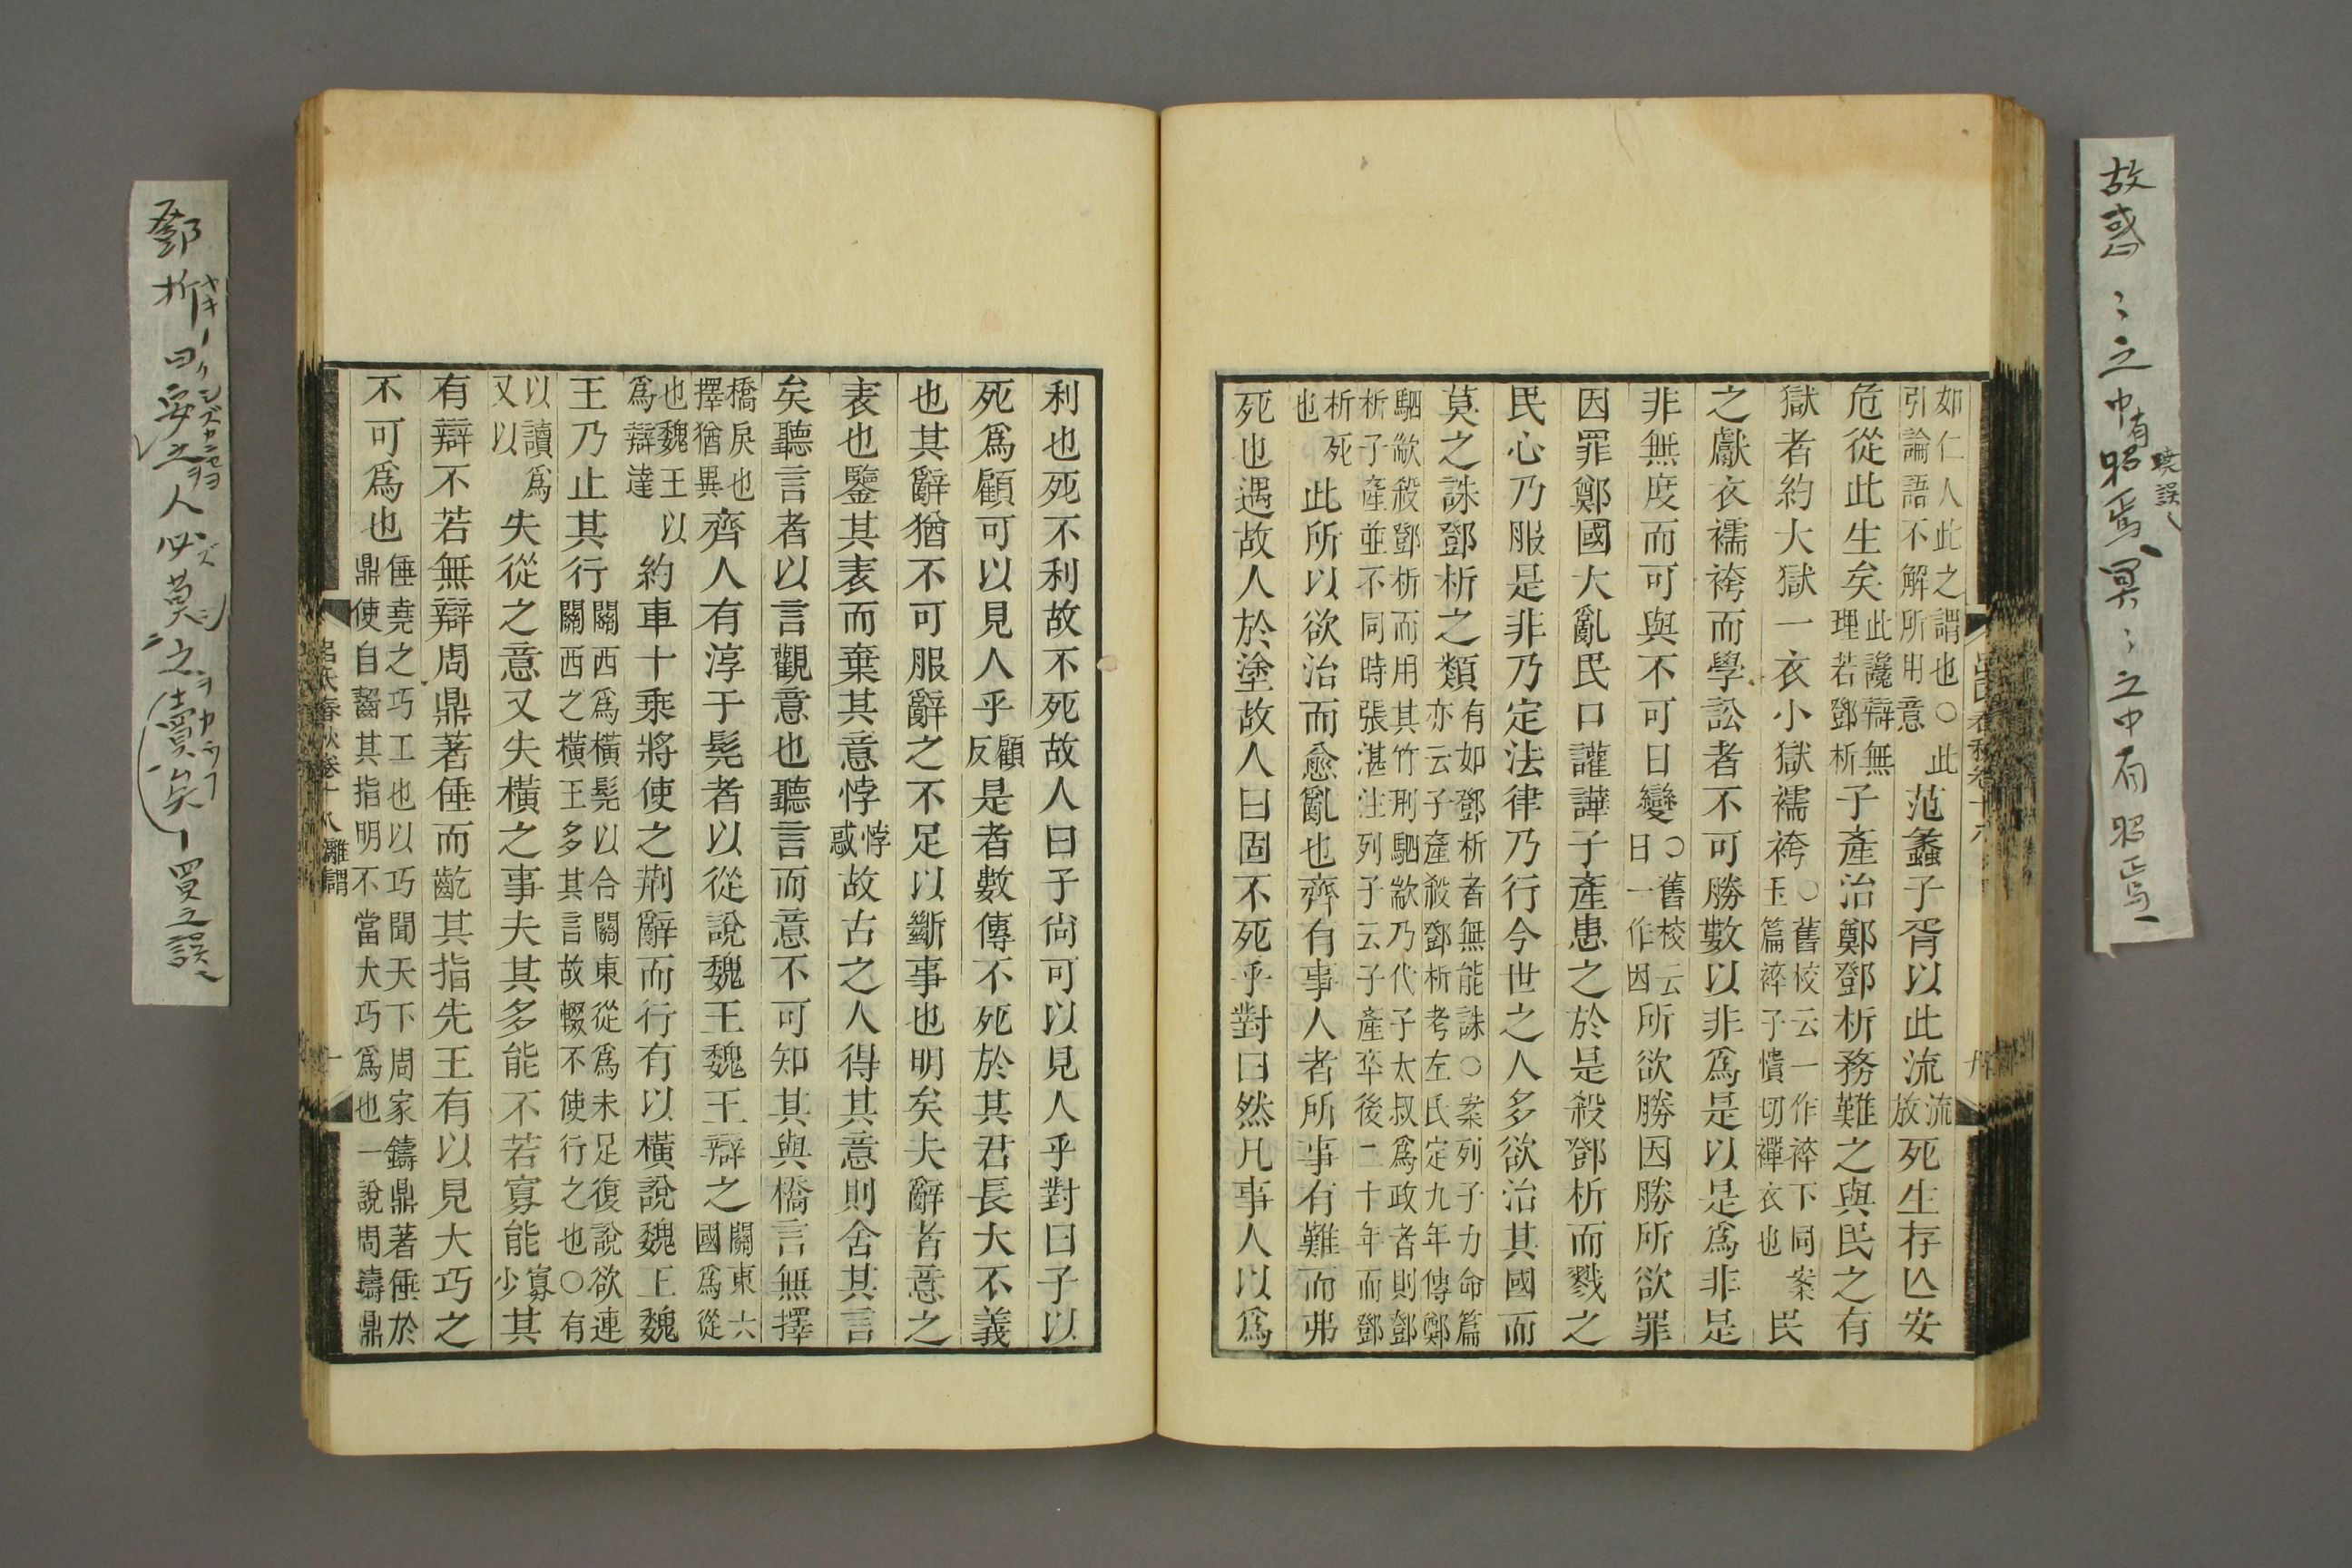 故惑惑之中有昭焉冥冥之中有昭焉
如仁人此之謂也○此
引論語不解所用意
范蠡子胥以此流
流
放
死生存亾安
危從此生矣
此讒辯無
理若鄧析
子產治鄭鄧析務難之與民之有
獄者約大獄一衣小獄襦袴
○舊校云一作䘹下同案
玉篇䘹子憒切襌衣也
民
之獻衣襦袴而學訟者不可勝數以非爲是以是爲非是
非無度而可與不可日變
○舊校云
日一作因
所欲勝因勝所欲罪
因罪鄭國大亂民口讙譁子產患之於是殺鄧析而戮之
民心乃服是非乃定法律乃行今世之人多欲治其國而
莫之誅鄧析之類
有如鄧析者無能誅○案列子力命篇
亦云子產殺鄧析考左氏定九年傳鄭
駟歂殺鄧析而用其竹刑駟歂乃代子太叔爲政者則鄧
析子產並不同時張湛注列子云子產卒後二十年而鄧
析死
也
此所以欲治而愈亂也齊有事人者所事有難而弗
死也遇故人於塗故人曰固不死乎對曰然凡事人以爲
呂氏春秋卷十八 離謂
利也死不利故不死故人曰子尙可以見人乎對曰子以
死爲顧可以見人乎
顧
反
是者數傳不死於其君長大不義
也其辭猶不可服辭之不足以斷事也明矣夫辭者意之
表也鑒其表而棄其意悖
悖
惑
故古之人得其意則舍其言
矣聽言者以言觀意也聽言而意不可知其與橋言無擇
橋戾也
擇猶異
齊人有淳于髡者以從說魏王魏王辯之
關東六
國爲從
也魏王以
爲辯達
約車十乘將使之荆辭而行有以橫說魏王魏
王乃止其行
關西爲橫髡以合關東從爲未足復說欲連
關西之橫王多其言故輟不使行之也○有
以讀爲
又以
失從之意又失橫之事夫其多能不若寡能
寡
少
其
有辯不若無辯周鼎著倕而齕其指先王有以見大巧之
不可爲也
倕堯之巧工也以巧聞天下周家鑄鼎著倕於
鼎使自齧其指明不當大巧爲也一說周鑄鼎
鄧析曰安之人必莫之賣矣 買之誤